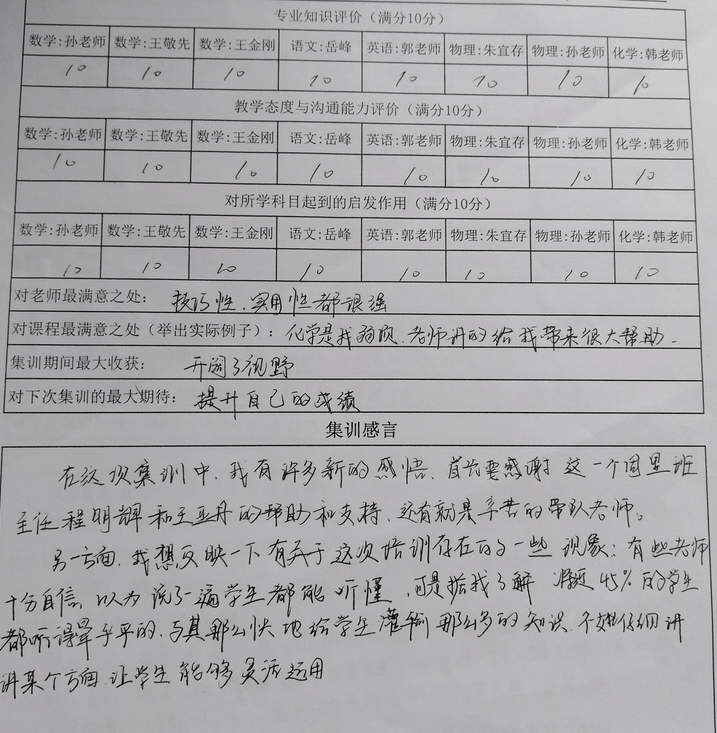 专业知识评价（满分10分）
数学:孙老师 数学:王敬先 数学:王金刚 语文:岳峰 英语:郭老师 物理:朱宜存 物理:孙老师 化学:韩老师
10 10 10 10 10 10 10 10
教学态度与沟通能力评价（满分10分）
数学:孙老师 数学:王敬先 数学:王金刚 语文:岳峰 英语:郭老师 物理:朱宜存 物理:孙老师 化学:韩老师
10 10 10 10 10 10 10 10
对所学科目起到的启发作用（满分10分）
数学:孙老师 数学:王敬先 数学:王金刚 语文:岳峰 英语:郭老师 物理:朱宜存 物理:孙老师 化学:韩老师
10 10 10 10 10 10 10 10
对老师最满意之处： 技巧性、实用性都很强
对课程最满意之处（举出实际例子）： 化学是我弱项、老师讲的给我带来很大帮助.
集训期间最大收获： 开阔了视野
对下次集训的最大期待： 提升自己的成绩
集训感言
在这次集训中，我有许多新的感悟，首先要感谢这一个周里班
主任程明辉和王亚丹的帮助和支持，还有就是辛苦的带队老师。
另一方面，我想反映一下有关于这次培训存在的一些现象：有些老师
十分自信，以为说了一遍学生都能听懂，可是据我了解 将近45%的学生
都听得晕乎乎的，与其那么快地给学生灌输那么多的知识，不如仔细讲
讲某个方面 让学生能够灵活运用